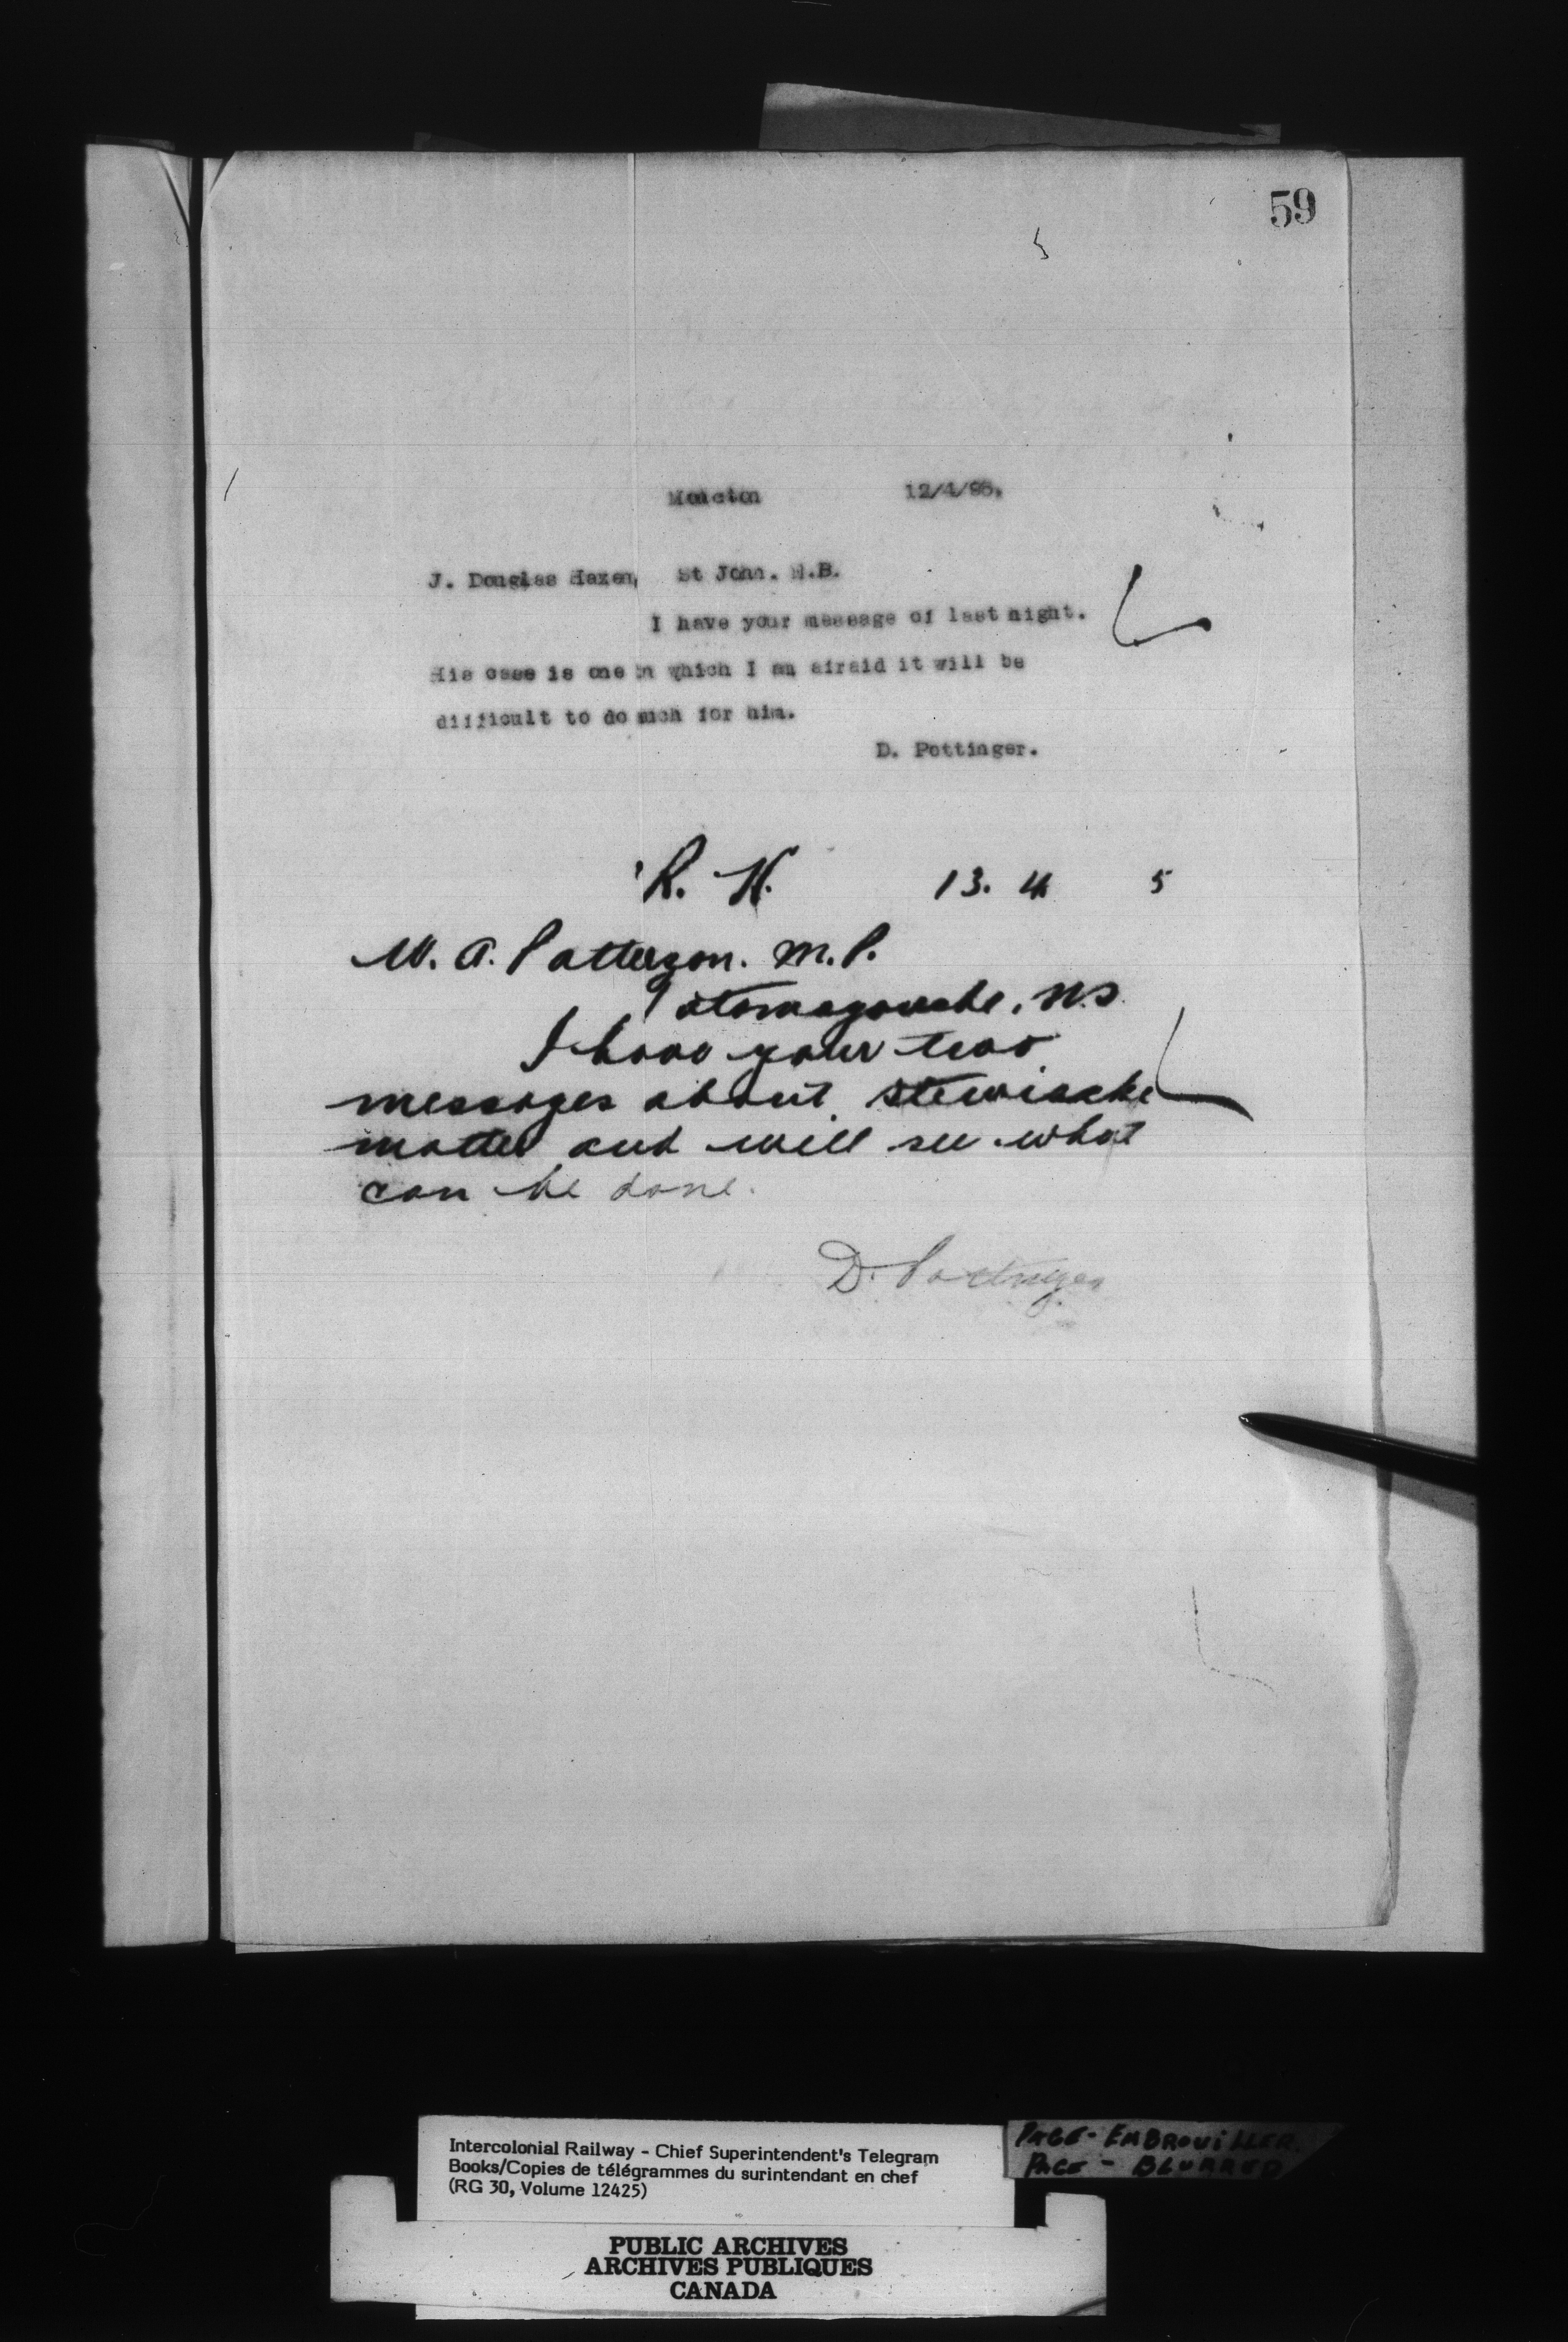 59
Moncton 12/4/95.
J. Douglas Hazen, St John. N.B.
I have your message of last night.
His case is one in which I am afraid it will be
difficult to do much for him.
D. Pottinger.
R. H. 13. 4 5
W. A. Patterson. M.P.
Tatamagouche, N.S.
I have your two
messages about Stewiacke
matter and will see what
can be done.
D. Pottinger
Intercolonial Railway - Chief Superintendent's Telegram
Books/Copies de télégrammes du surintendant en chef
(RG 30, Volume 12425)
PAGE - EMBROUILLER
PAGE - BLURRED
PUBLIC ARCHIVES
ARCHIVES PUBLIQUES
CANADA